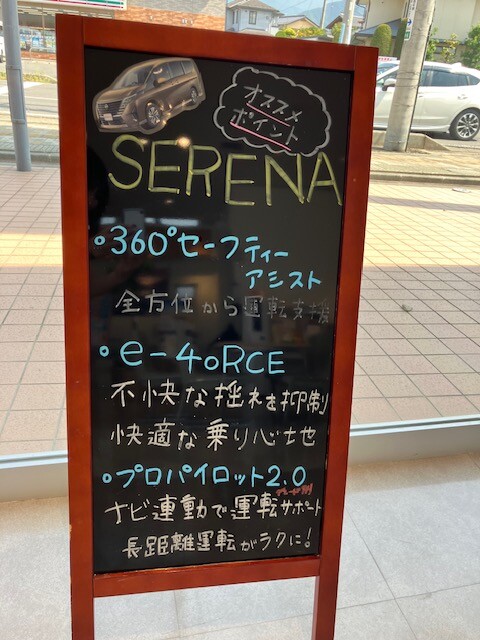 オススメ
ポイント
SERENA
・360°セーフティー
アシスト
全方位から運転支援
・e-4ORCE
不快な揺れを抑制
快適な乗り心地
・プロパイロット2.0
グレード別
ナビ連動で運転サポート
長距離運転がラクに!